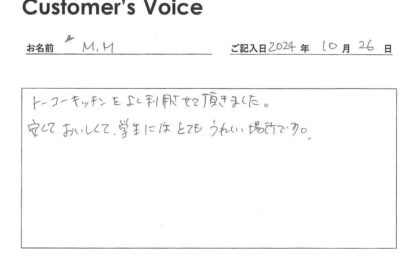 Customer's Voice
お名前 M.M ご記入日 2024 年 10 月 26 日
トーコーキッチンをよく利用させて頂きました。
安くて、おいしくて、学生にはとてもうれしい場所です。